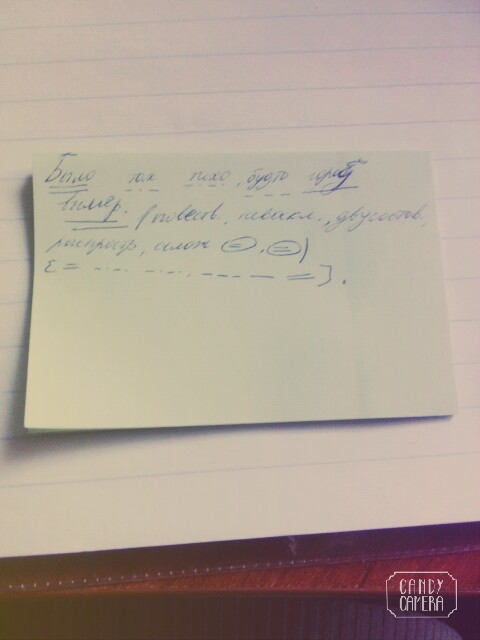 Было так тихо, будто город
вымер. (повеств., невоскл., двусостав.
распростр, слож
CANDY
CAMERA